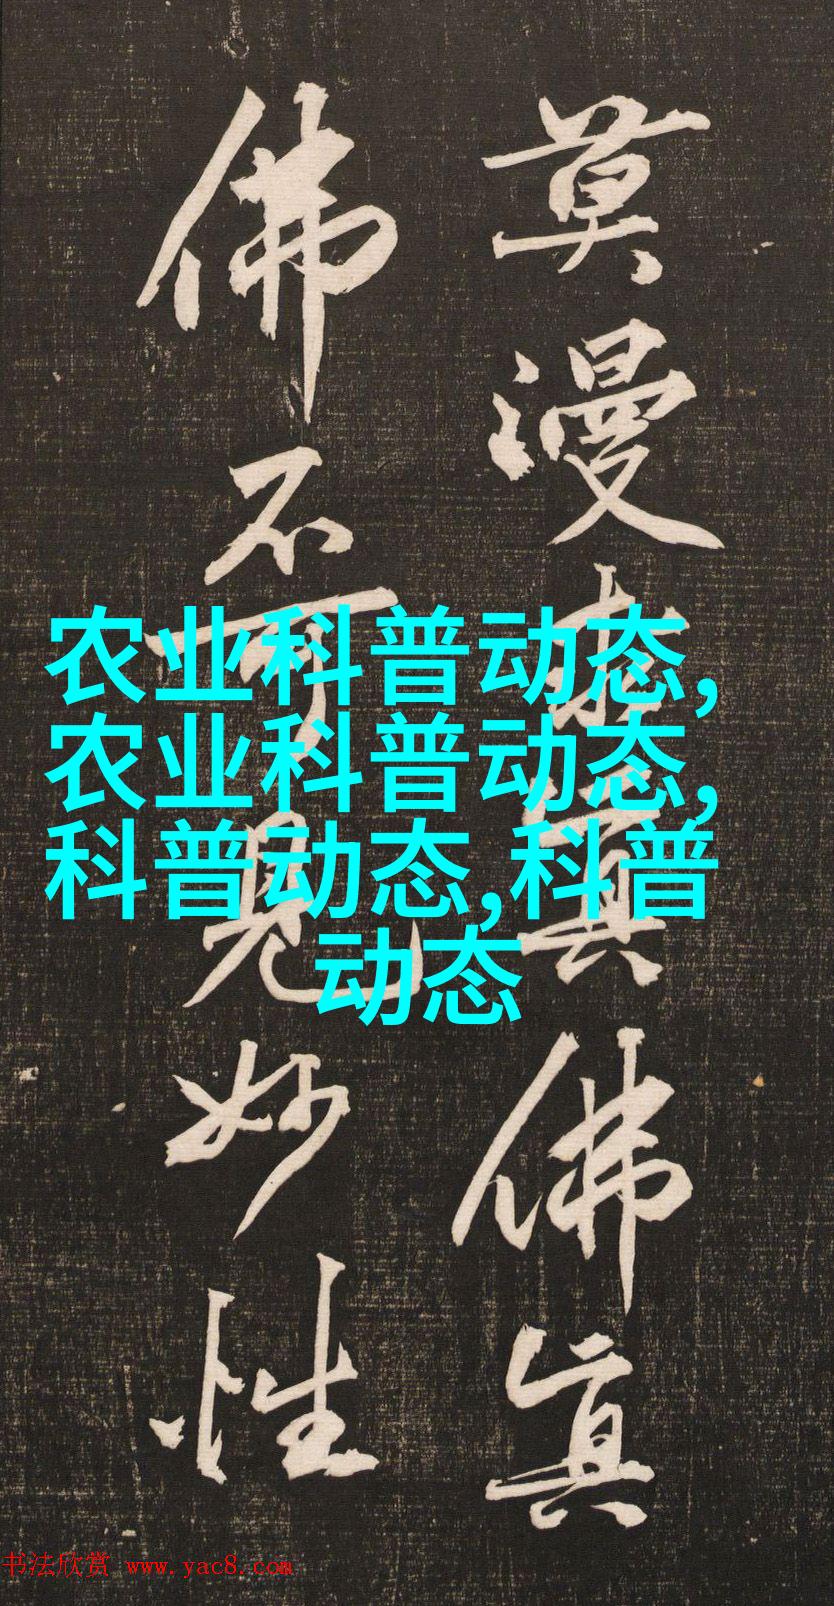 莫漫求真佛真
佛不可見妙性
农业科普动态,
农业科普动态,
科普动态,科普
动态
书法欣赏 www.yac8.com